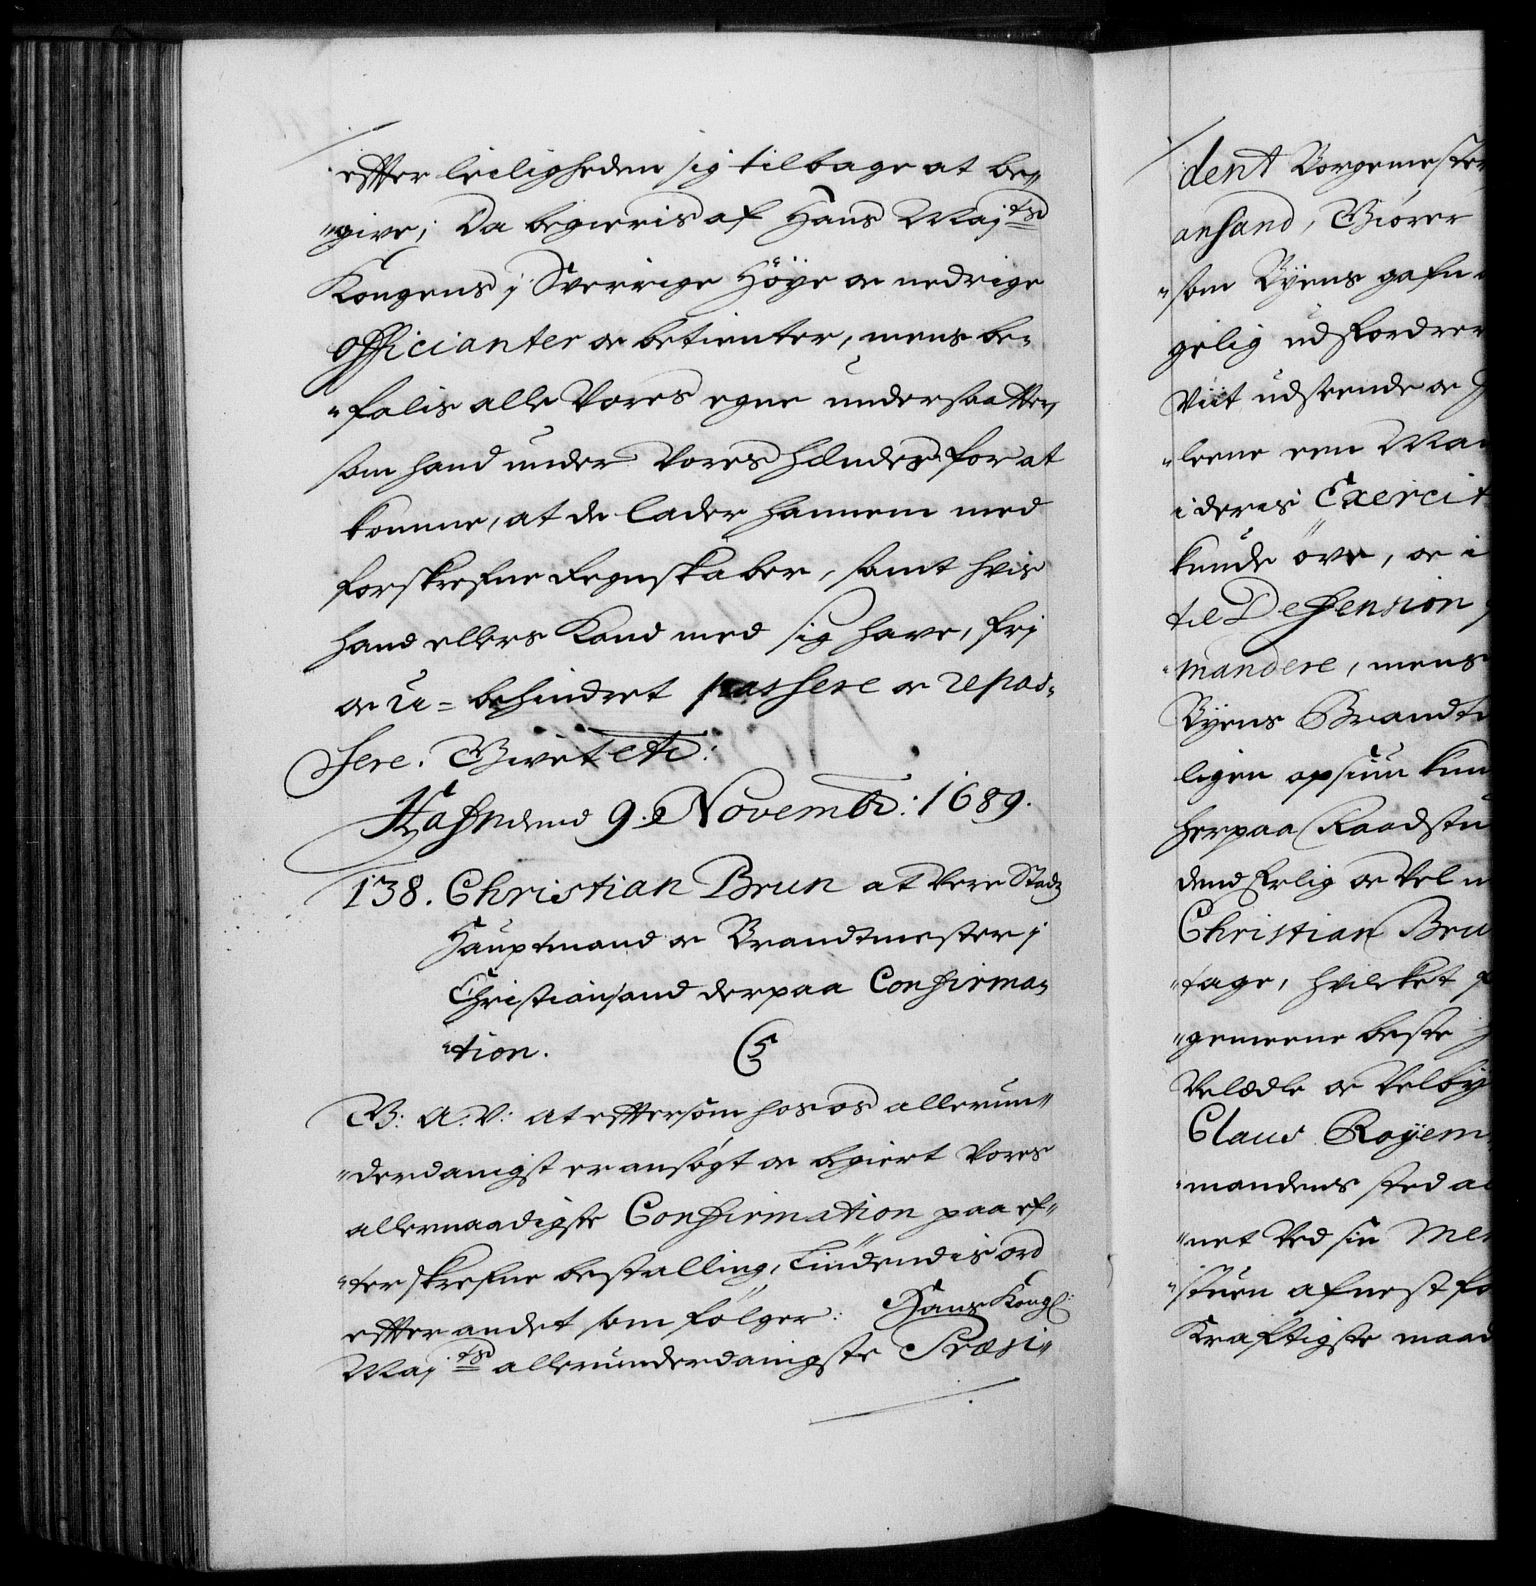 effter leiligheden sig tilbage at be„
„give; Da begieris af Hans Maj:tsd
Kongens j Sverrige Höÿe oc nedrige
officianter oc betienter, mens be„
„falis alle Vores egne undersaatter,
som hand under Vores hænder for at
komme, at de lader hannem med
forskrefne Regnskaber, samt hvis
hand ellers Kand med sig have, frj
oc u=behindret passere oc repas„
sere. Givet etc:
Hafn dend 9. Novembr: 1689.
138. Christian Brun at Vere Stadz
Hauptmand oc Brandtmester j
Christiansand derpaa Confirma„
„tion. C5
G: A: V: at efftersom hos os allerun„
„derdanigst er ansøgt oc begiert Vores
allernaadigste Confirmation paa ef„
„terskrefne bestalling, Liudendis ord
effter andet som følger: Hans Kongl:
Maj:tsd allerunderdanigste Præsi„
dent Borgemester
ansand, Giörer
„som Byens gafn
gelig udfordrer
Viit udseende oc
„leene een Man
i deris Exercit
kunde öve, oc i
til Defension
„mandere, mens
Byens Brandt
ligen opsiun kun
herpaa Raadstu
dend Erlig oc Vel
Christian Bru
„tage, hvilcket
„gemeene beste
Velædle oc Velby
Claus Röyem
„mandens sted
„net Ved sin
„stuen afnest fo
Kraftigste maad